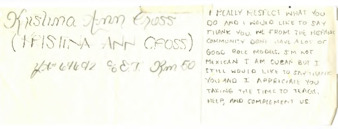 Kristina Ann Cross
(KRISTINA ANN CROSS)
I REALLY RESPECT WHAT YOU
DO AND I WOULD LIKE TO SAY
THANK YOU. WE FROM THE HISPANIC
COMMUNITY DONT HAVE A LOT OF
GOOD ROLE MODELS. I'M NOT
MEXICAN I AM CUBAN BUT I
STILL WOULD LIKE TO SAY THANK
YOU AND I APPRICIAT YOU
TAKING THE TIME TO TEACH,
HELP, AND COMPLEMENT US.